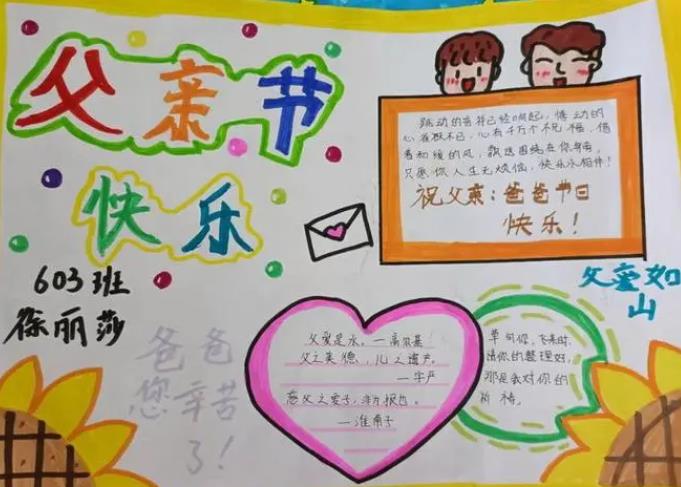 父亲节
快乐
603班
徐丽莎
爸爸
您辛苦
了!
跳动的音符已经响起,情动的
心在 不已,心有千万个祝福,借
着和暖的风,飘送围绕在你身旁,
只愿你人生无烦恼,快乐永相伴!
祝父亲:爸爸节日
快乐!
父爱如
山
父爱是水。—高尔基
父之美德,儿之遗产。
—字严
慈父之爱子,非为报也。
—淮南子
你,飞来时,
请你的整理好,
那是我对你的
祈祷。